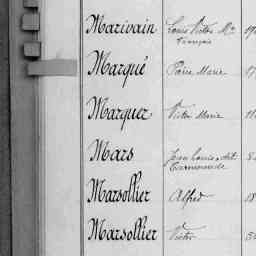 Marivain Louis Victor Mie
François
Marqué Pierre Marie
Marquer Victor Marie
Mars Jean Louis
Marsollier Alfred 18
Marsollier Victor